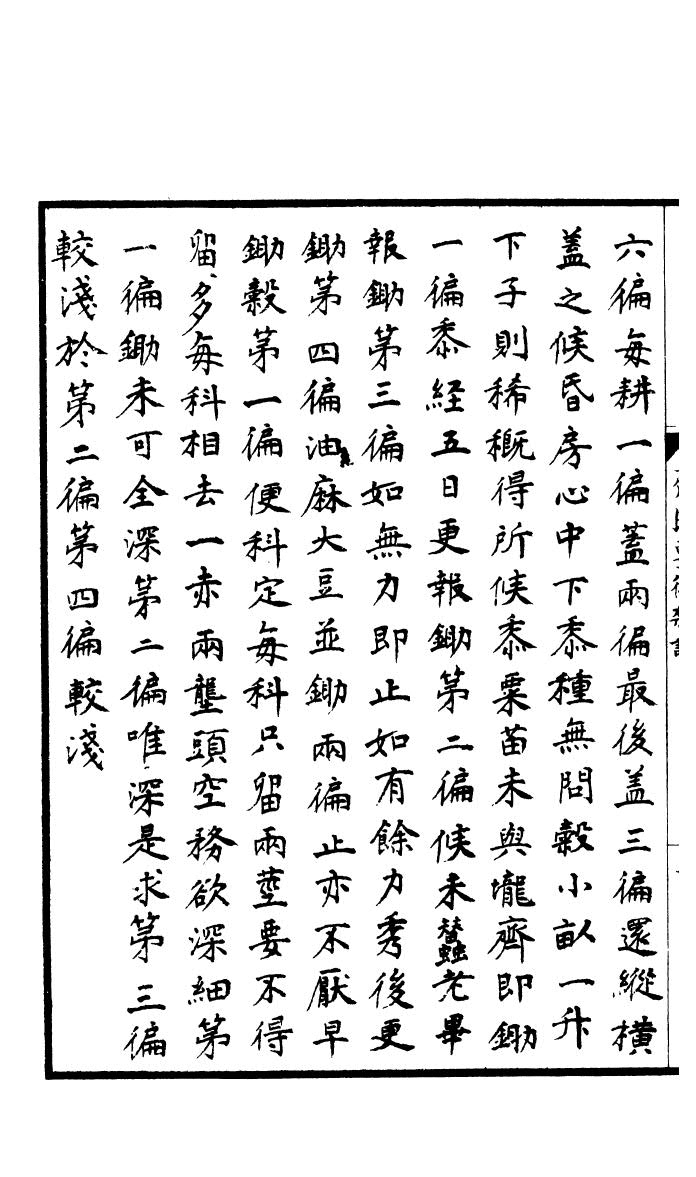 六徧每耕一徧蓋兩徧最後盖三徧還縱橫
蓋之候昏房心中下黍種無問榖小畝一升
下子則稀概得所候黍粟苗未與壠齊即鋤
一徧黍経五日更報鋤第二徧候未蠶老畢
報鋤第三徧如無力即止如有餘力秀後更
鋤第四徧油麻大豆並鋤兩徧止亦不厭早
鋤榖第一徧便科定每科只留兩莖要不得
留多每科相去一赤兩壟頭空務欲深細第
一徧鋤未可全深第二徧唯深是求第三徧
較淺於第二徧第四徧較淺